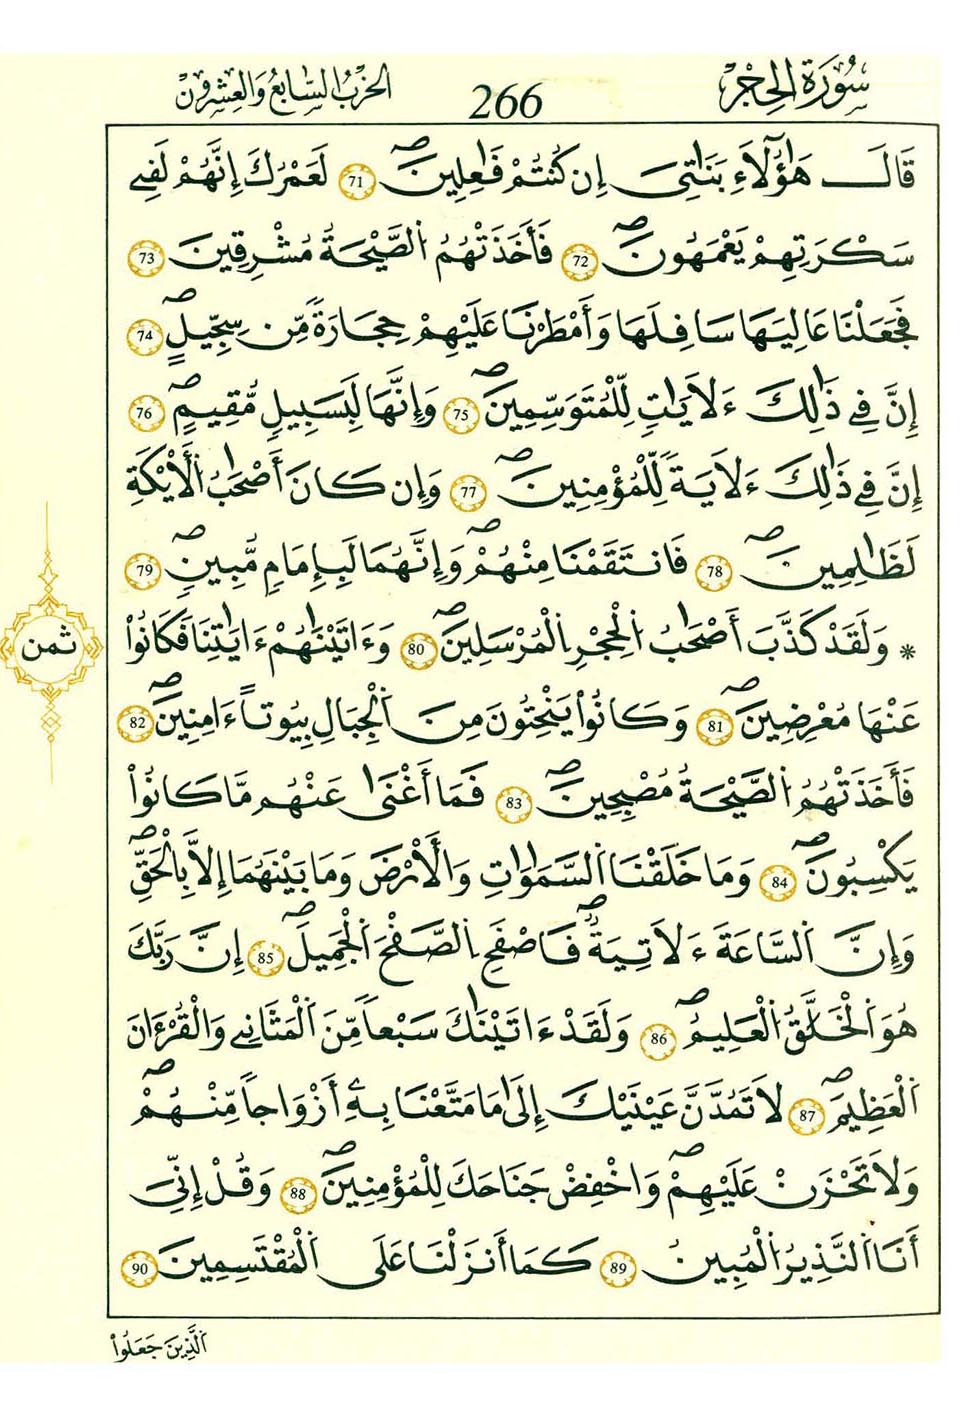 سُورَةُ الحِجْر 266 الحِزْبُ السَّابِعُ وَالعِشْرُونَ
قَالَ هَٰؤُلَآءِ بَنَاتِىَ إِن كُنتُمْ فَٰعِلِينَۖ 71 لَعَمْرُكَ إِنَّهُمْ لَفِے
سَكْرَتِهِمْ يَعْمَهُونَۖ 72 فَأَخَذَتْهُمُ الصَّيْحَةُ مُشْرِقِينَ 73
فَجَعَلْنَا عَالِيَهَا سَافِلَهَا وَأَمْطَرْنَا عَلَيْهِمْ حِجَارَةً مِّن سِجِّيلٍۖ 74
إِنَّ فِے ذَٰلِكَ ءَلَايَٰتٍ لِّلْمُتَوَسِّمِينَۖ 75 وَإِنَّهَا لَبِسَبِيلٍ مُّقِيمٍۖ 76
إِنَّ فِے ذَٰلِكَ ءَلَايَةً لِّلْمُؤْمِنِينَۖ 77 وَإِن كَانَ أَصْحَٰبُ الْأَيْكَةِ
لَظَٰلِمِينَۖ 78 فَانتَقَمْنَا مِنْهُمْۖ وَإِنَّهُمَا لَبِإِمَامٍ مُّبِينٍۖ 79
* وَلَقَدْ كَذَّبَ أَصْحَٰبُ الْحِجْرِ الْمُرْسَلِينَۖ 80 وَءَاتَيْنَٰهُمْ ءَايَٰتِنَا فَكَانُواْ
ثمن
عَنْهَا مُعْرِضِينَۖ 81 وَكَانُواْ يَنْحِتُونَ مِنَ الْجِبَالِ بِيُوتاً ءَامِنِينَۖ 82
فَأَخَذَتْهُمُ الصَّيْحَةُ مُصْبِحِينَۖ 83 فَمَا أَغْنَىٰ عَنْهُم مَّا كَانُواْ
يَكْسِبُونَۖ 84 وَمَا خَلَقْنَا السَّمَٰوَٰتِ وَالْأَرْضَ وَمَا بَيْنَهُمَا إِلَّا بِالْحَقِّۖ
وَإِنَّ السَّاعَةَ ءَلَاتِيَةٌۖ فَاصْفَحِ الصَّفْحَ الْجَمِيلَۖ 85 إِنَّ رَبَّكَ
هُوَ الْخَلَّٰقُ الْعَلِيمُۖ 86 وَلَقَدْ ءَاتَيْنَٰكَ سَبْعاً مِّنَ الْمَثَانِے وَالْقُرْءَانَ
الْعَظِيمَۖ 87 لَا تَمُدَّنَّ عَيْنَيْكَ إِلَىٰ مَا مَتَّعْنَا بِهِۦ أَزْوَاجاً مِّنْهُمْۖ
وَلَا تَحْزَنْ عَلَيْهِمْۖ وَاخْفِضْ جَنَاحَكَ لِلْمُؤْمِنِينَۖ 88 وَقُلْ إِنِّىَ
أَنَا النَّذِيرُ الْمُبِينُ 89 كَمَا أَنزَلْنَا عَلَى الْمُقْتَسِمِينَ 90
الَّذِينَ جَعَلُواْ